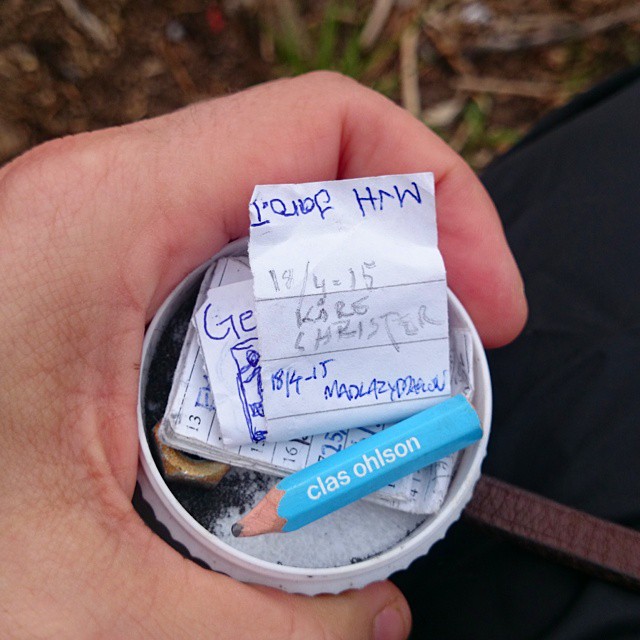 MJH Jaro.J
18/4-15
KÅRE
CHRISTER
18/4-15 MADLAZYDRAGON
Ge
13
16
clas ohlson